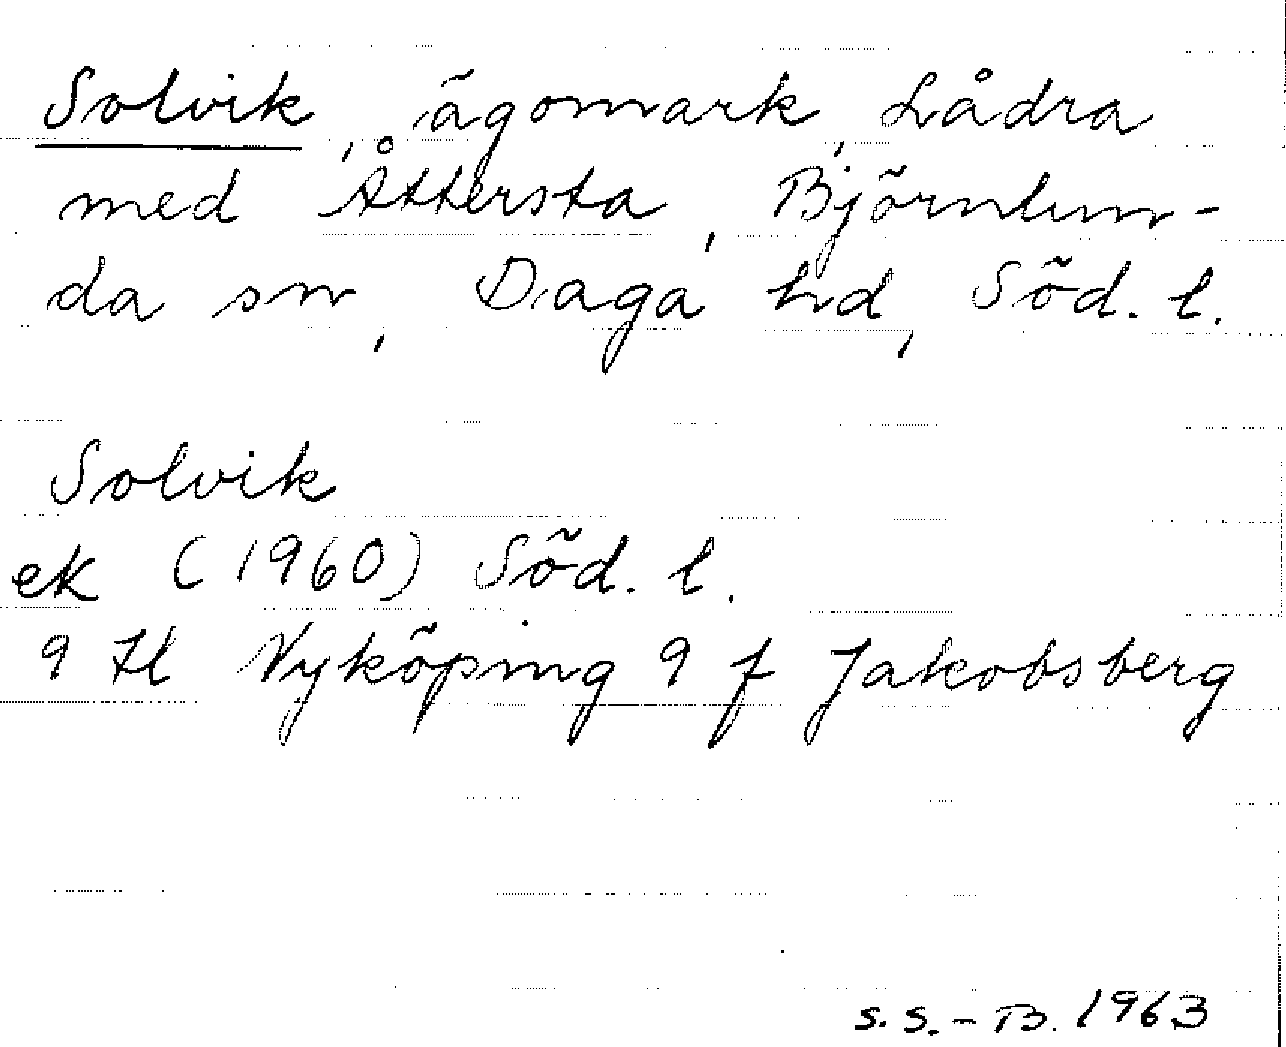 Solvik, ägomark, Lådra
med Åttersta, Björnlun-
da sn, Daga hd, Söd. l.
Solvik
ek (1960) Söd. l.
9 H Nyköping 9 f Jakobsberg
S. S. - B. 1963